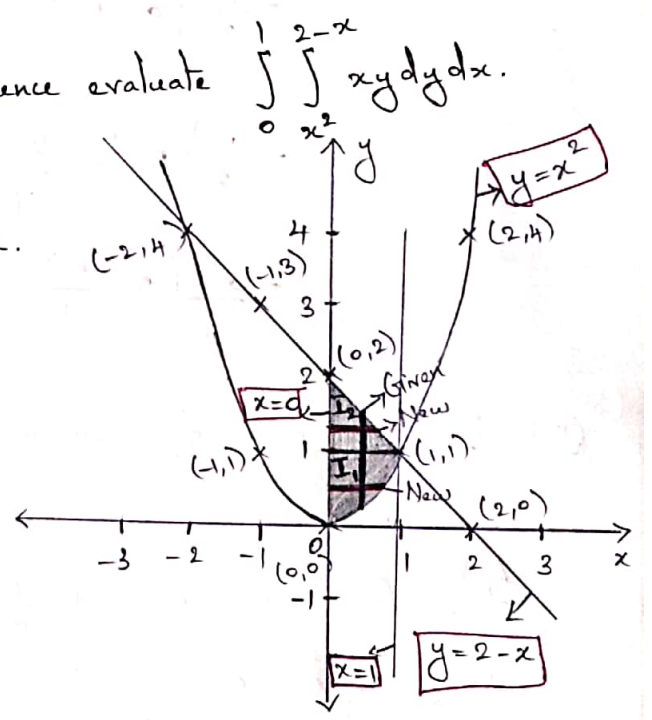 ence evaluate ∫₀¹ ∫ₓ²²⁻ˣ xy dy dx.
y
y = x²
4
(-2,4)
(2,4)
(-1,3)
3
(0,2)
2
Given
x=0
I₂
New
(-1,1)
1
(1,1)
I₁
New
(2,0)
-3 -2 -1 0 1 2 3 x
(0,0)
-1
x=1
y = 2-x